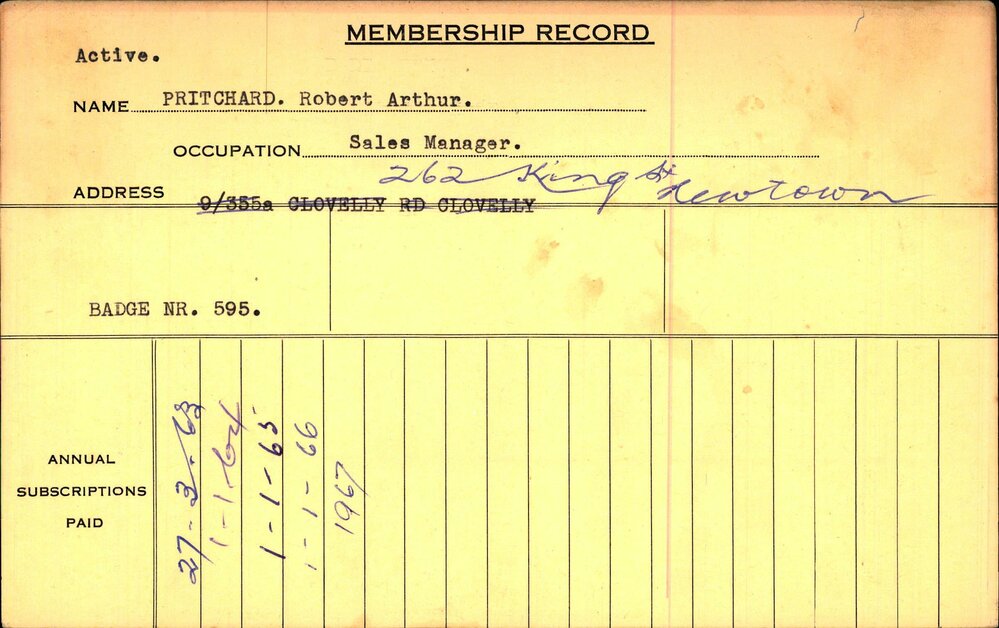 MEMBERSHIP RECORD
Active.
NAME PRITCHARD. Robert Arthur.
OCCUPATION Sales Manager.
262 King St Newtown
ADDRESS 9/355a CLOVELLY RD CLOVELLY
BADGE NR. 595.
ANNUAL
SUBSCRIPTIONS
PAID
27-3-63
1-1-64
1-1-65
1-1-66
1967